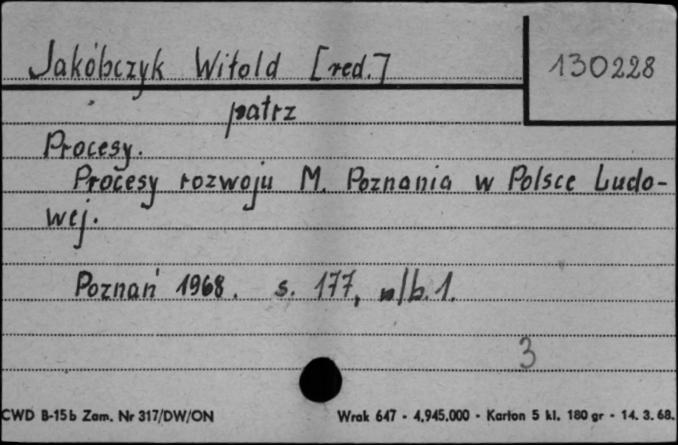 Jakóbczyk Witold [red.]
130228
patrz
Procesy.
Procesy rozwoju M. Poznania w Polsce Ludo-
wej.
Poznań 1968. s. 177, nlb. 1.
3
CWD B-15b Zam. Nr 317/DW/ON
Wrak 647 - 4,945.000 - Karton 5 kl. 180 gr - 14. 3. 68.